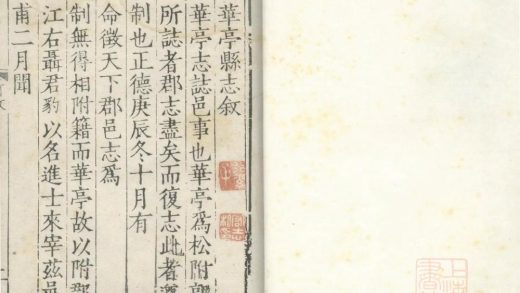 華亭縣志叙
華亭志誌邑事也華亭爲松附郭
所誌者郡志盡矣而復志此者遵
制也正德庚辰冬十月有
命徵天下郡邑志爲
制無得相附籍而華亭故以附郡
江右聶君豹以名進士來宰茲邑
甫二月聞